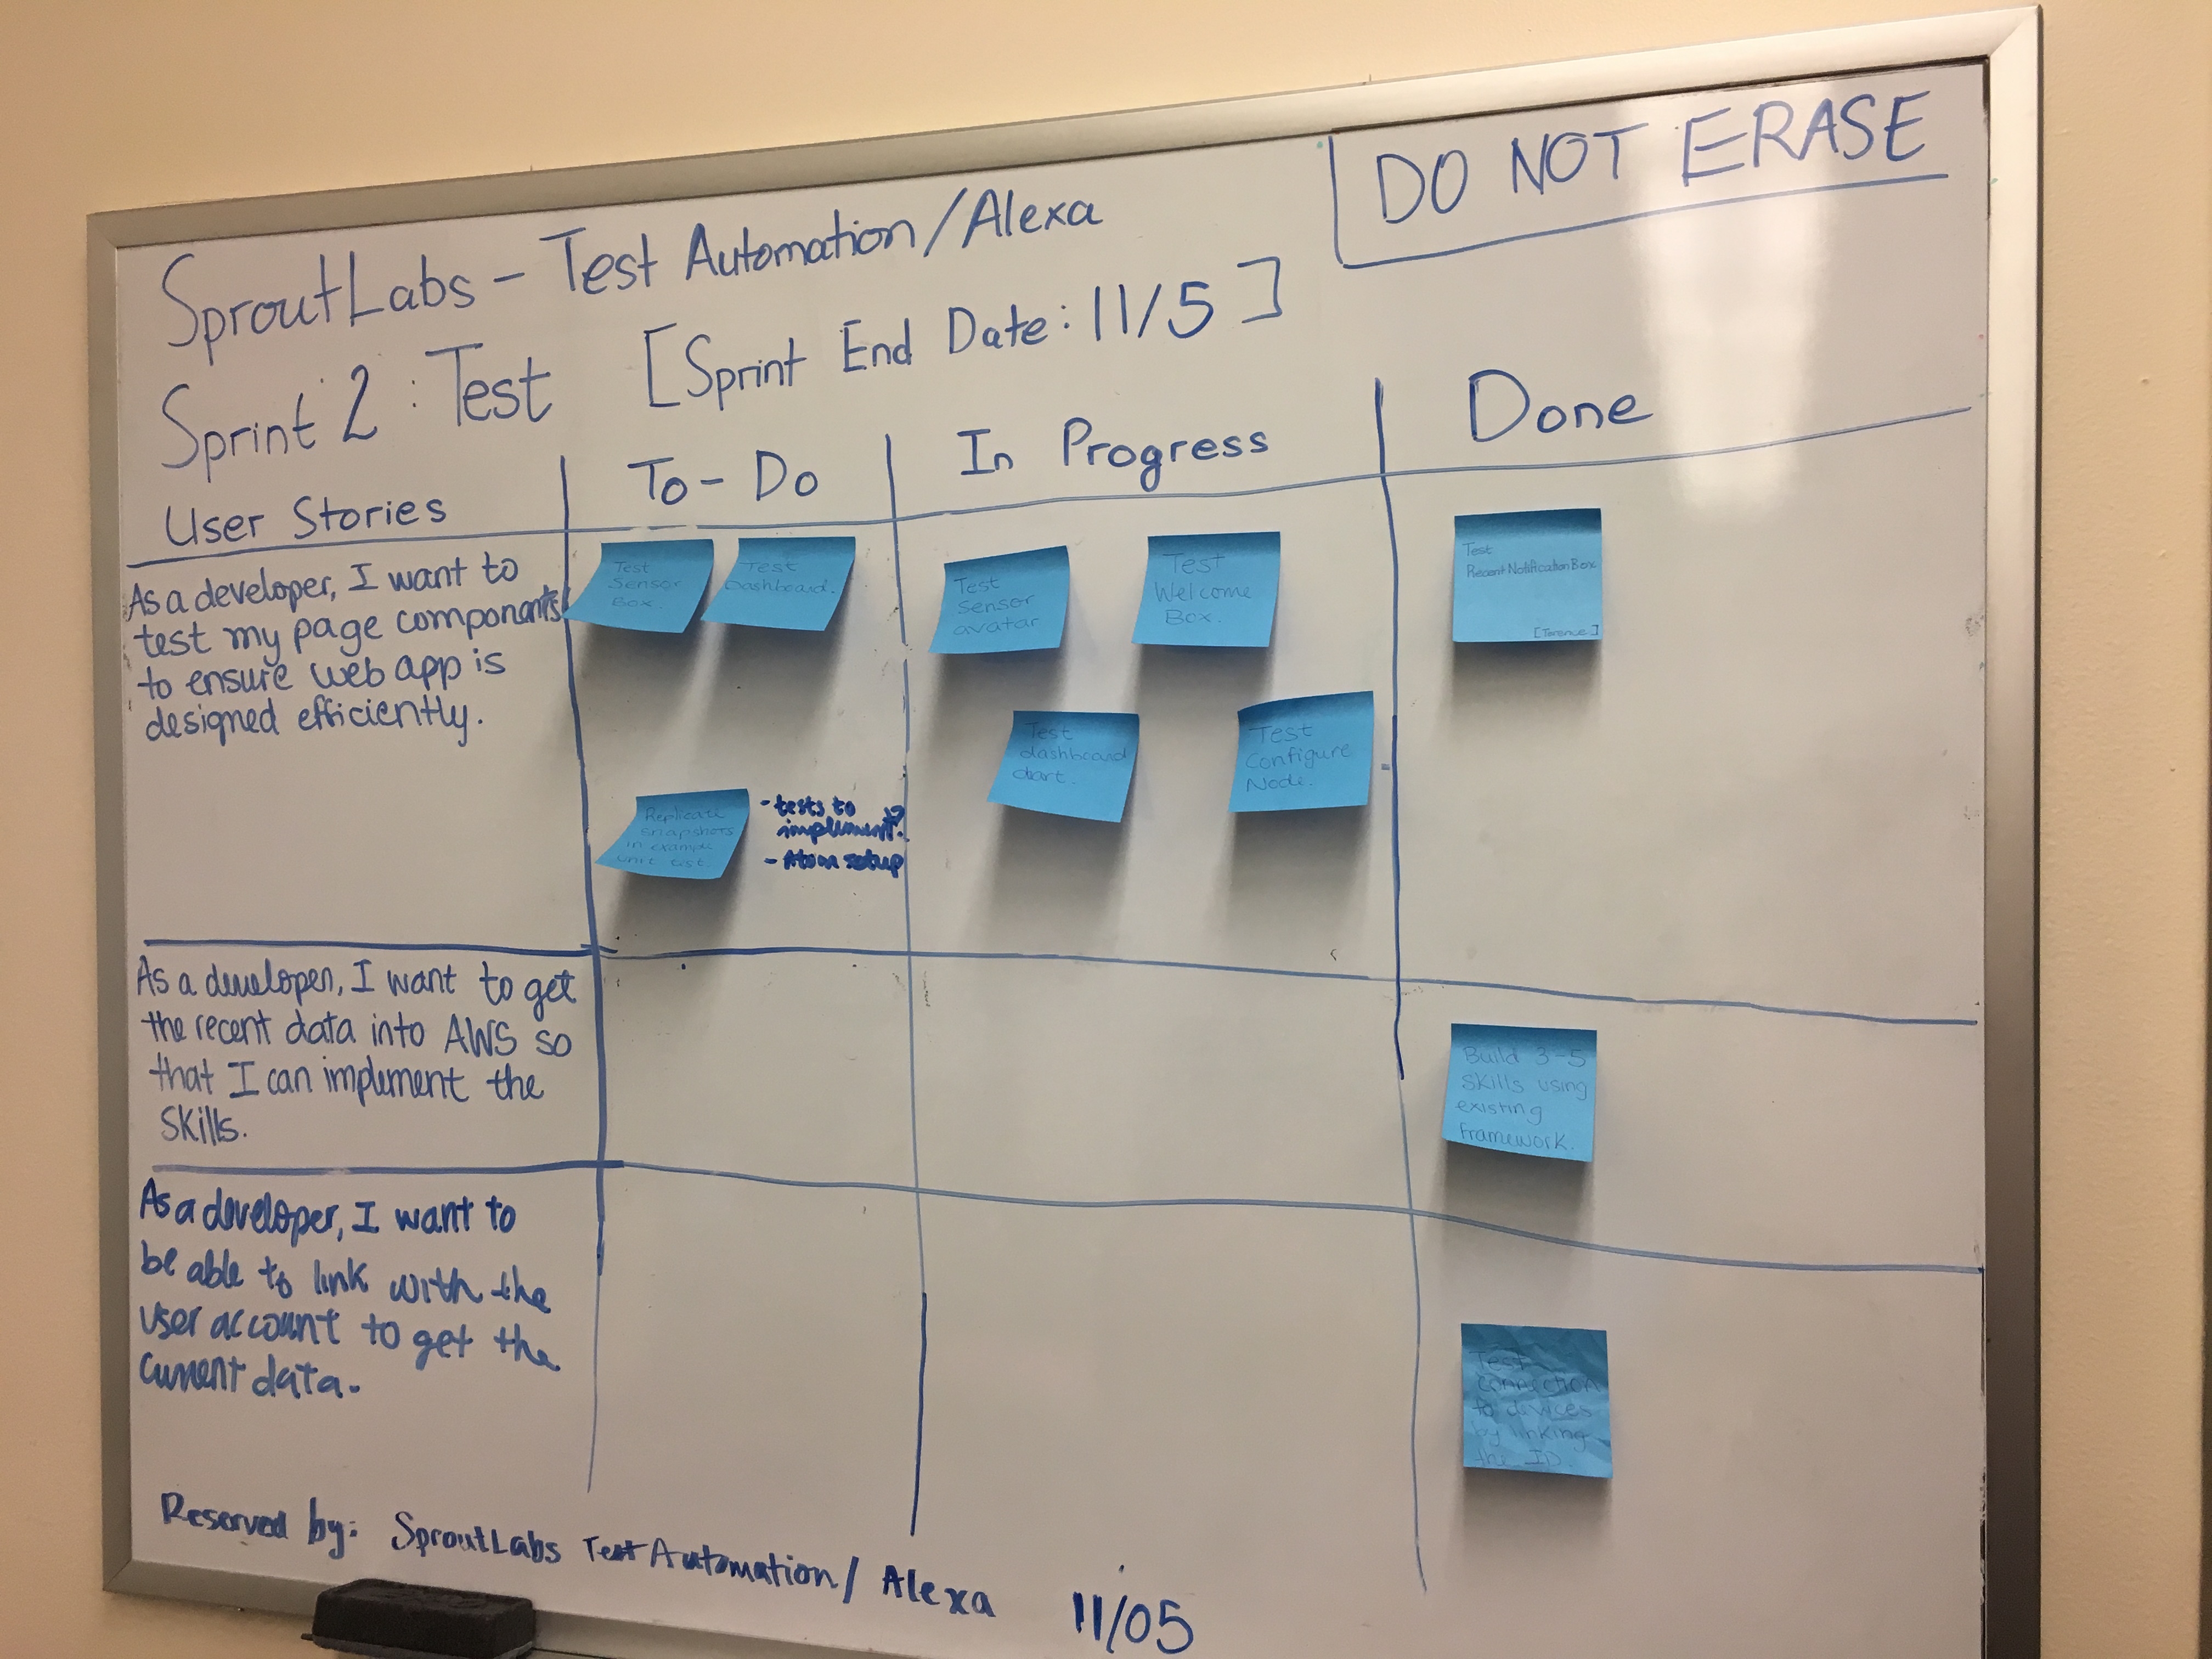 DO NOT ERASE
SproutLabs - Test Automation/Alexa
Sprint 2 : Test [Sprint End Date: 11/5]
User Stories
To-Do
In Progress
Done
As a developer, I want to
test my page components
to ensure web app is
designed efficiently.
Test
Sensor
Box.
Test
Dashboard.
Replicate
snapshots
in example
unit test.
- tests to
implement?
- Atom setup
Test
Sensor
avatar
Test
Welcome
Box.
Test
dashboard
chart.
Test
Configure
Node.
Test
Recent Notification Box
[Terence]
As a developer, I want to get
the recent data into AWS so
that I can implement the
Skills.
Build 3-5
Skills using
existing
framework.
As a developer, I want to
be able to link with the
user account to get the
current data.
Test
connection
to devices
by linking
the ID.
Reserved by: SproutLabs Test Automation/Alexa 11/05